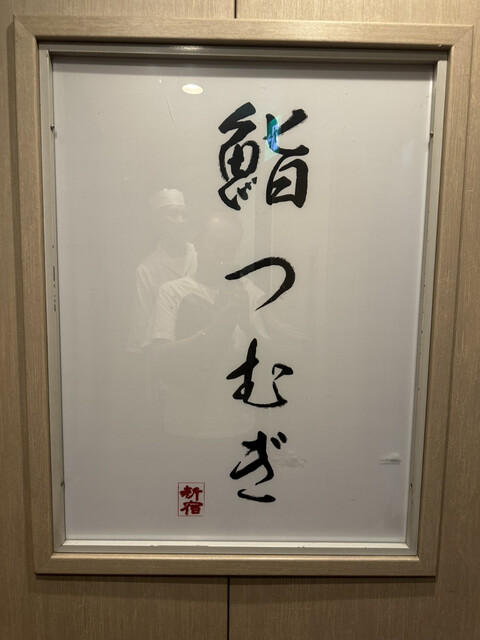 鮨つむぎ
新宿